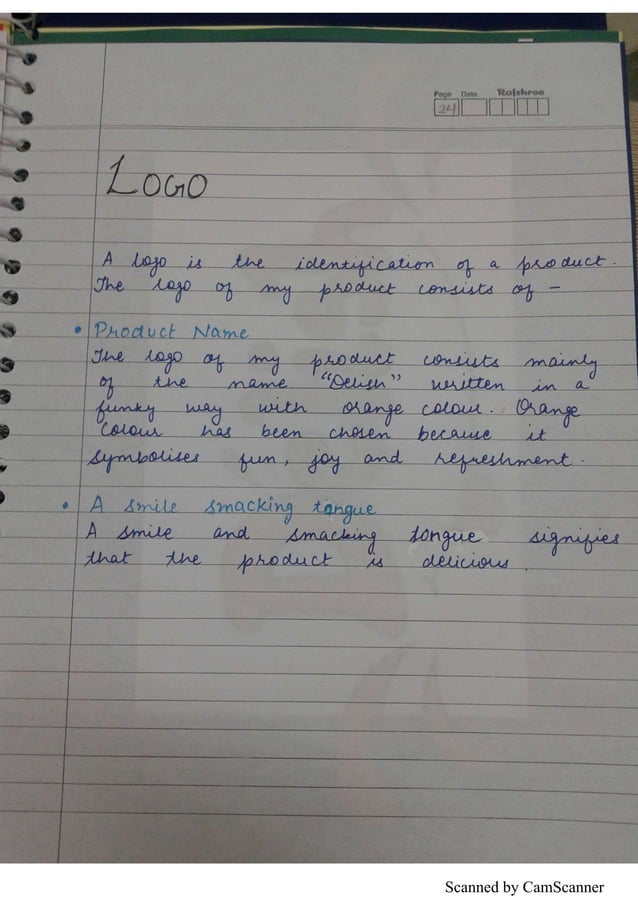 Page Date Rajshree
24
LOGO
A logo is the identification of a product.
The logo of my product consists of –
• Product Name
The logo of my product consists mainly
of the name "Delish" written in a
funky way with orange colour. Orange
colour has been chosen because it
symbolises fun, joy and refreshment.
• A smile smacking tongue
A smile and smacking tongue signifies
that the product is delicious.
Scanned by CamScanner